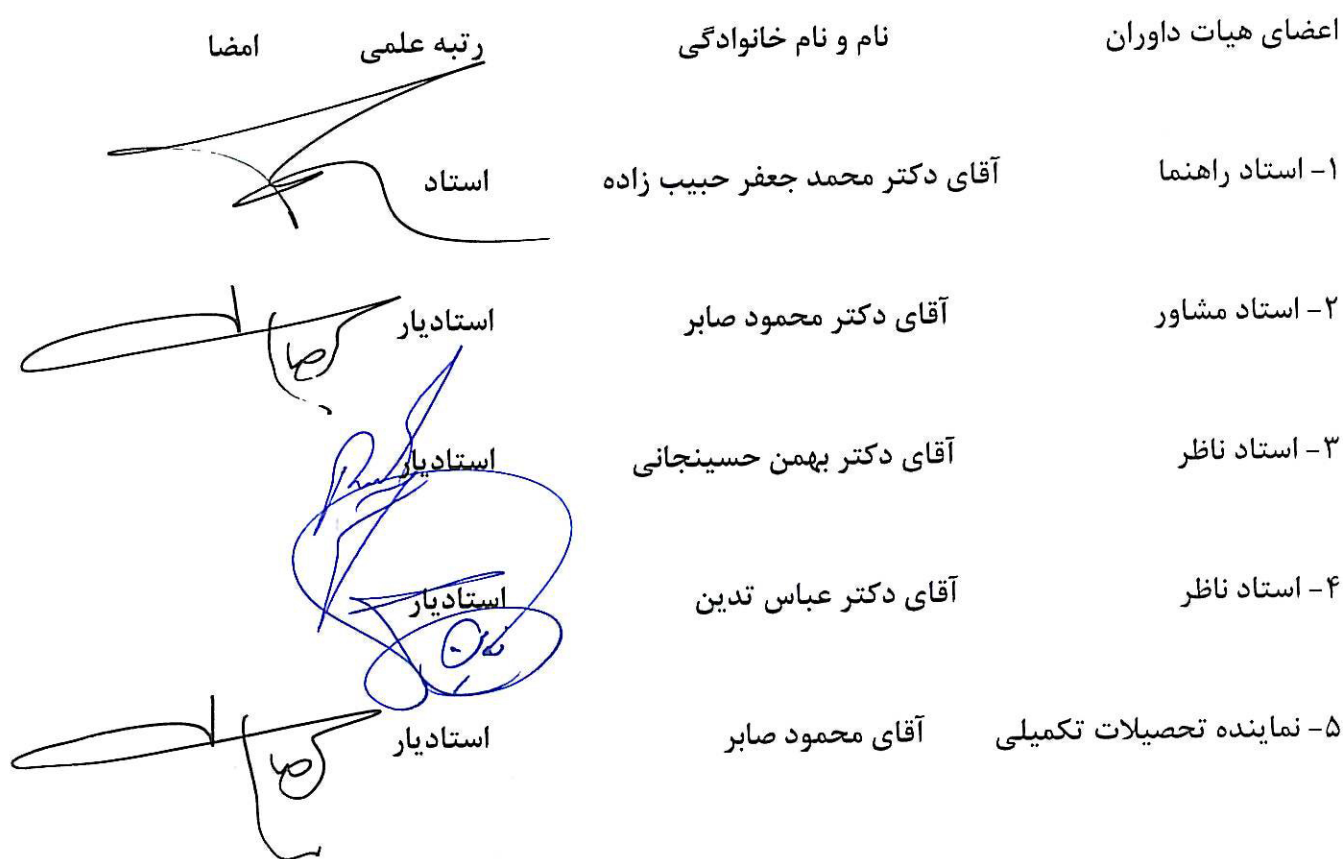 اعضای هیات داوران نام و نام خانوادگی رتبه علمی امضا
۱- استاد راهنما آقای دکتر محمد جعفر حبیب زاده استاد
۲- استاد مشاور آقای دکتر محمود صابر استادیار
۳- استاد ناظر آقای دکتر بهمن حسینجانی استادیار
۴- استاد ناظر آقای دکتر عباس تدین استادیار
۵- نماینده تحصیلات تکمیلی آقای محمود صابر استادیار